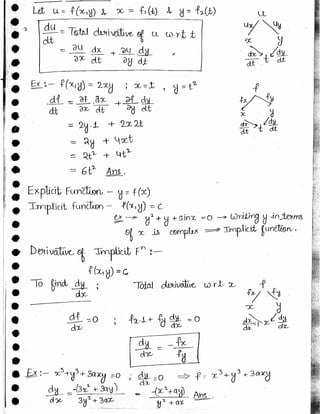 Let u = f(x,y) & x = f₁(t) & y = f₂(t)
du/dt = Total derivative of u w.r.t t
= ∂u/∂x dx/dt + ∂u/∂y dy/dt
u
ux uy
x y
dx/dt t dy/dt
Ex :- f(x,y) = 2xy ; x = t , y = t²
df/dt = ∂f/∂x . ∂x/dt + ∂f/∂y dy/dt
= 2y.1 + 2x.2t
= 2y + 4xt
= 2t² + 4t²
= 6t² Ans.
f
fx fy
x y
dx/dt t dy/dt
Explicit Function - y = f(x)
Implicit Function - f(x,y) = c
ex → y² + y + sinx = 0 → Writing y in terms
of x is complex ⟹ Implicit function.
Derivative of Implicit Fⁿ :-
f(x,y) = c
To find dy/dx ; Total derivative w.r.t. x
df/dx = 0 ; fx.1 + fy dy/dx = 0
dy/dx = -fx/fy
f
fx fy
x y
dx/dx x dy/dx
Ex :- x³+y³+3axy = 0 ; dy/dx = 0 ⟹ f = x³+y³+3axy
dy/dx = -(3x²+3ay)/3y²+3ax = -(x²+ay)/y²+ax Ans.